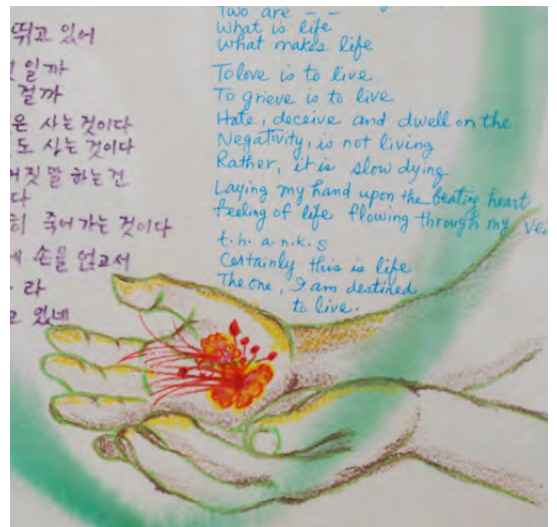 뛰고 있어
일까
걸까
은 사는 것이다
도 사는 것이다
거짓말 하는 건
다
히 죽어가는 것이다
에 손을 얹고서
라
고 있네
Two are - -
What is life
what makes life
To love is to live
To grieve is to live
Hate, deceive and dwell on the
Negativity, is not living
Rather, it is slow dying
Laying my hand upon the beating heart
feeling of life flowing through my vei
t.h.a.n.k.s
Certainly this is life
The one, I am destined
to live.